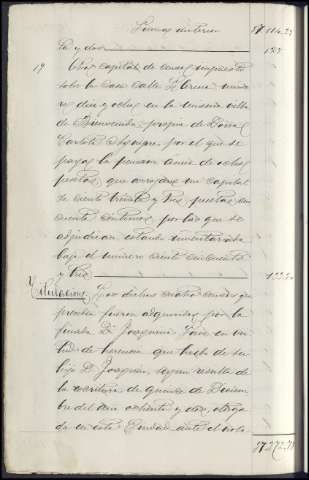 Suma anterior 57.114.25
ta y dos
19 Otro capital de censo impuesto
sobre la casa calle
diez y ocho en la misma villa
de Benavente propia de Doña
Carlota por el que se
paga la pension anua de ocho
pesetas, que arrojan un capital
de ciento treinta y tres pesetas cin
cuenta centimos por las que se
adjudican estando inventariada
bajo el número ciento cincuenta
y tres
Titulacion: Los dichos cuatro censos que
preceden fueron adquiridos por la
finada Dª Joaquina en vir
tud de herencia que hubo de su
hijo D. Joaquin, segun resulta de
la escritura de quince de Diciem
bre del año ochenta y dos, otorga
da en esta Ciudad ante el nota